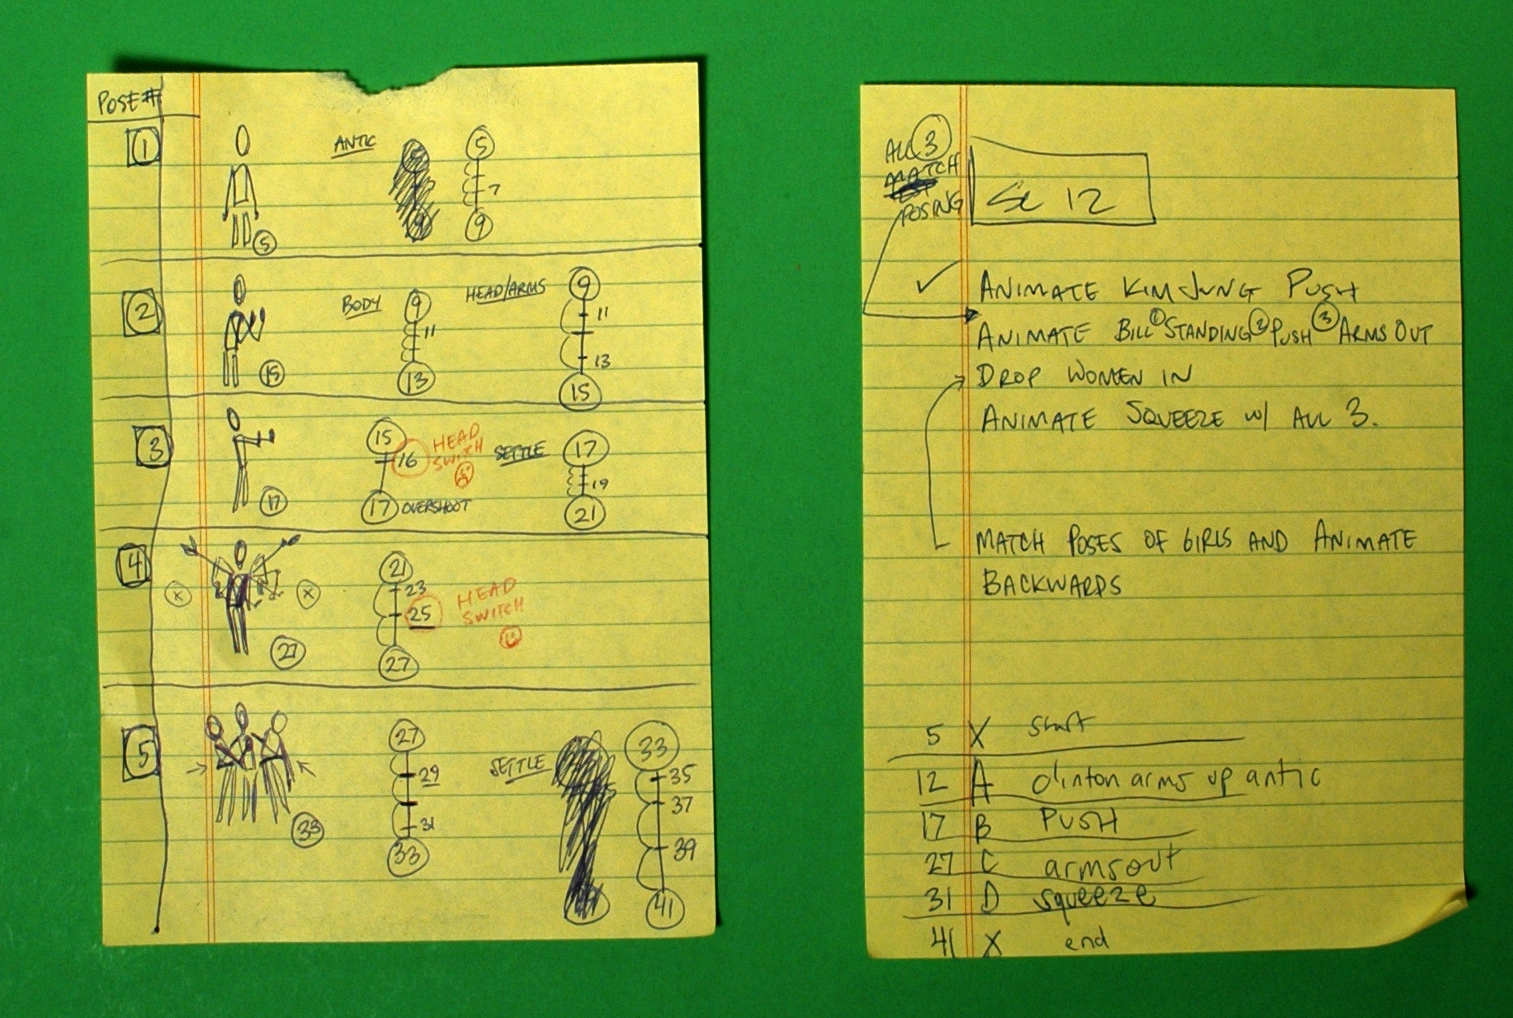 POSE #
1
ANTIC
5
7
9
5
2
BODY
9
11
13
HEAD/ARMS
9
11
13
15
15
3
15
16
HEAD
SWITCH
17 OVERSHOOT
SETTLE
17
19
21
17
4
X
X
21
23
25
27
HEAD
SWITCH
27
5
27
29
31
33
SETTLE
33
35
37
39
41
33
ALL 3
MATCH
POSING
SC 12
✓ ANIMATE KIM JUNG PUSH
ANIMATE BILL ① STANDING ② PUSH ③ ARMS OUT
DROP WOMEN IN
ANIMATE SQUEEZE W/ ALL 3.
MATCH POSES OF GIRLS AND ANIMATE
BACKWARDS
5 X start
12 A clinton arms up antic
17 B PUSH
27 C arms out
31 D squeeze
41 X end